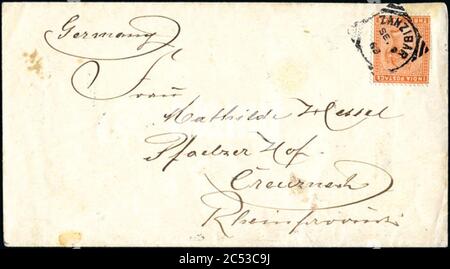 Germany
ZANZIBAR
SE
INDIA POSTAGE
Frau
Mathilde Wessel
Pfaelzer Hof.
Creuznach
Rheinprovinz
alamy
Image ID: 2C53C9J
www.alamy.com